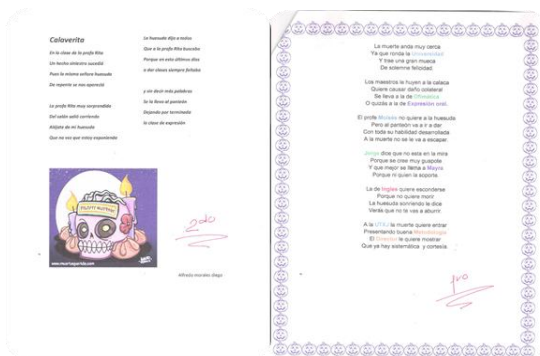 Calaverita
En la clase de la profe Rita
Un hecho siniestro sucedió
Pues la misma señora huesuda
De repente se nos apareció
La profe Rita muy sorprendida
Del salón salió corriendo
Aléjate de mí huesuda
Que no ves que estoy exponiendo
La huesuda dijo a
Que a la profe Rita buscaba
Porque en esta última días
a dar clases siempre faltaba
y sin decir más palabras
Se la llevo al panteón
Dejando por terminada
la clase de expresión
www.muertequerida.com
2do
Alfredo morales diego
La muerte anda muy cerca
Ya que ronda la Universidad
Y trae una gran mueca
De solemne felicidad.
Los maestros le huyen a la calaca
Quiere causar daño colateral
Se lleva a la de Ofimática
O quizás a la de Expresión oral.
El profe Moisés no quiere a la huesuda
Pero al panteón va a ir a dar
Con toda su habilidad desarrollada
A la muerte no se le va a escapar.
Jorge dice que no esta en la mira
Porque se cree muy guapote
Y que mejor se lleva a Mayra
Porque ni quien la soporte.
La de Ingles quiere esconderse
Porque no quiere morir
La huesuda sonriendo le dice
Verás que no te vas a aburrir.
A la UTVJ la muerte quiere entrar
Presentando buena Metodología
El Director le quiere mostrar
Que ya hay sistemática y cortesía.
1ro